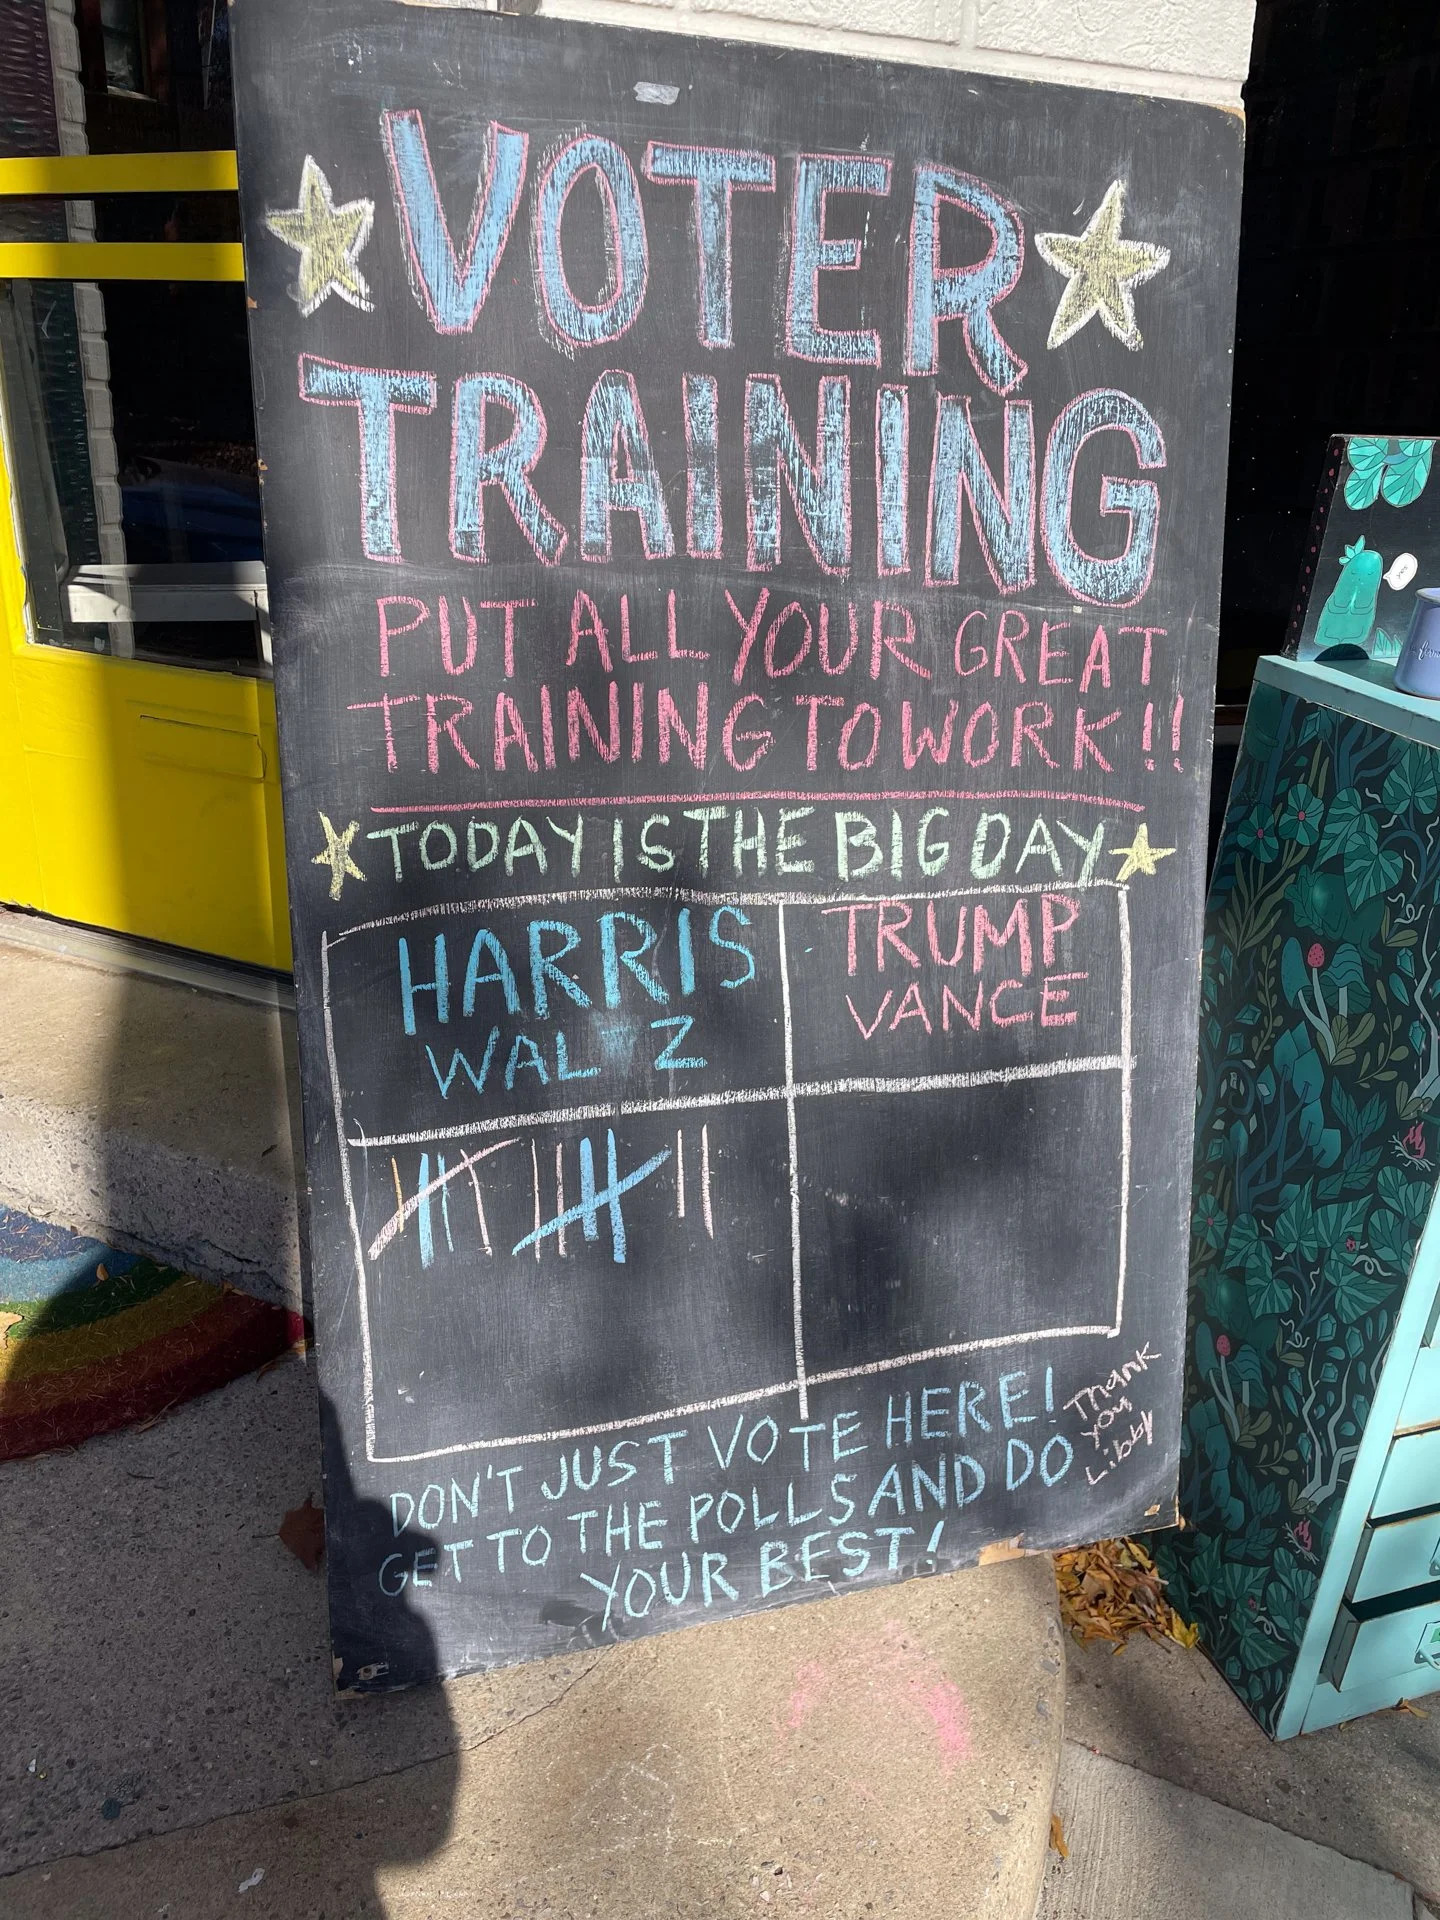 VOTER
TRAINING
PUT ALL YOUR GREAT
TRAINING TO WORK!!
TODAY IS THE BIG DAY
HARRIS
WAL Z
TRUMP
VANCE
DON'T JUST VOTE HERE!
GET TO THE POLLS AND DO
YOUR BEST!
Thank
you
Libby